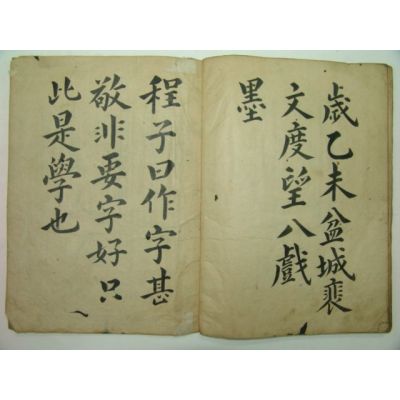 歲乙未盆城裵
文度望八戲
墨
程子曰作字甚
敬非要字好只
此是學也